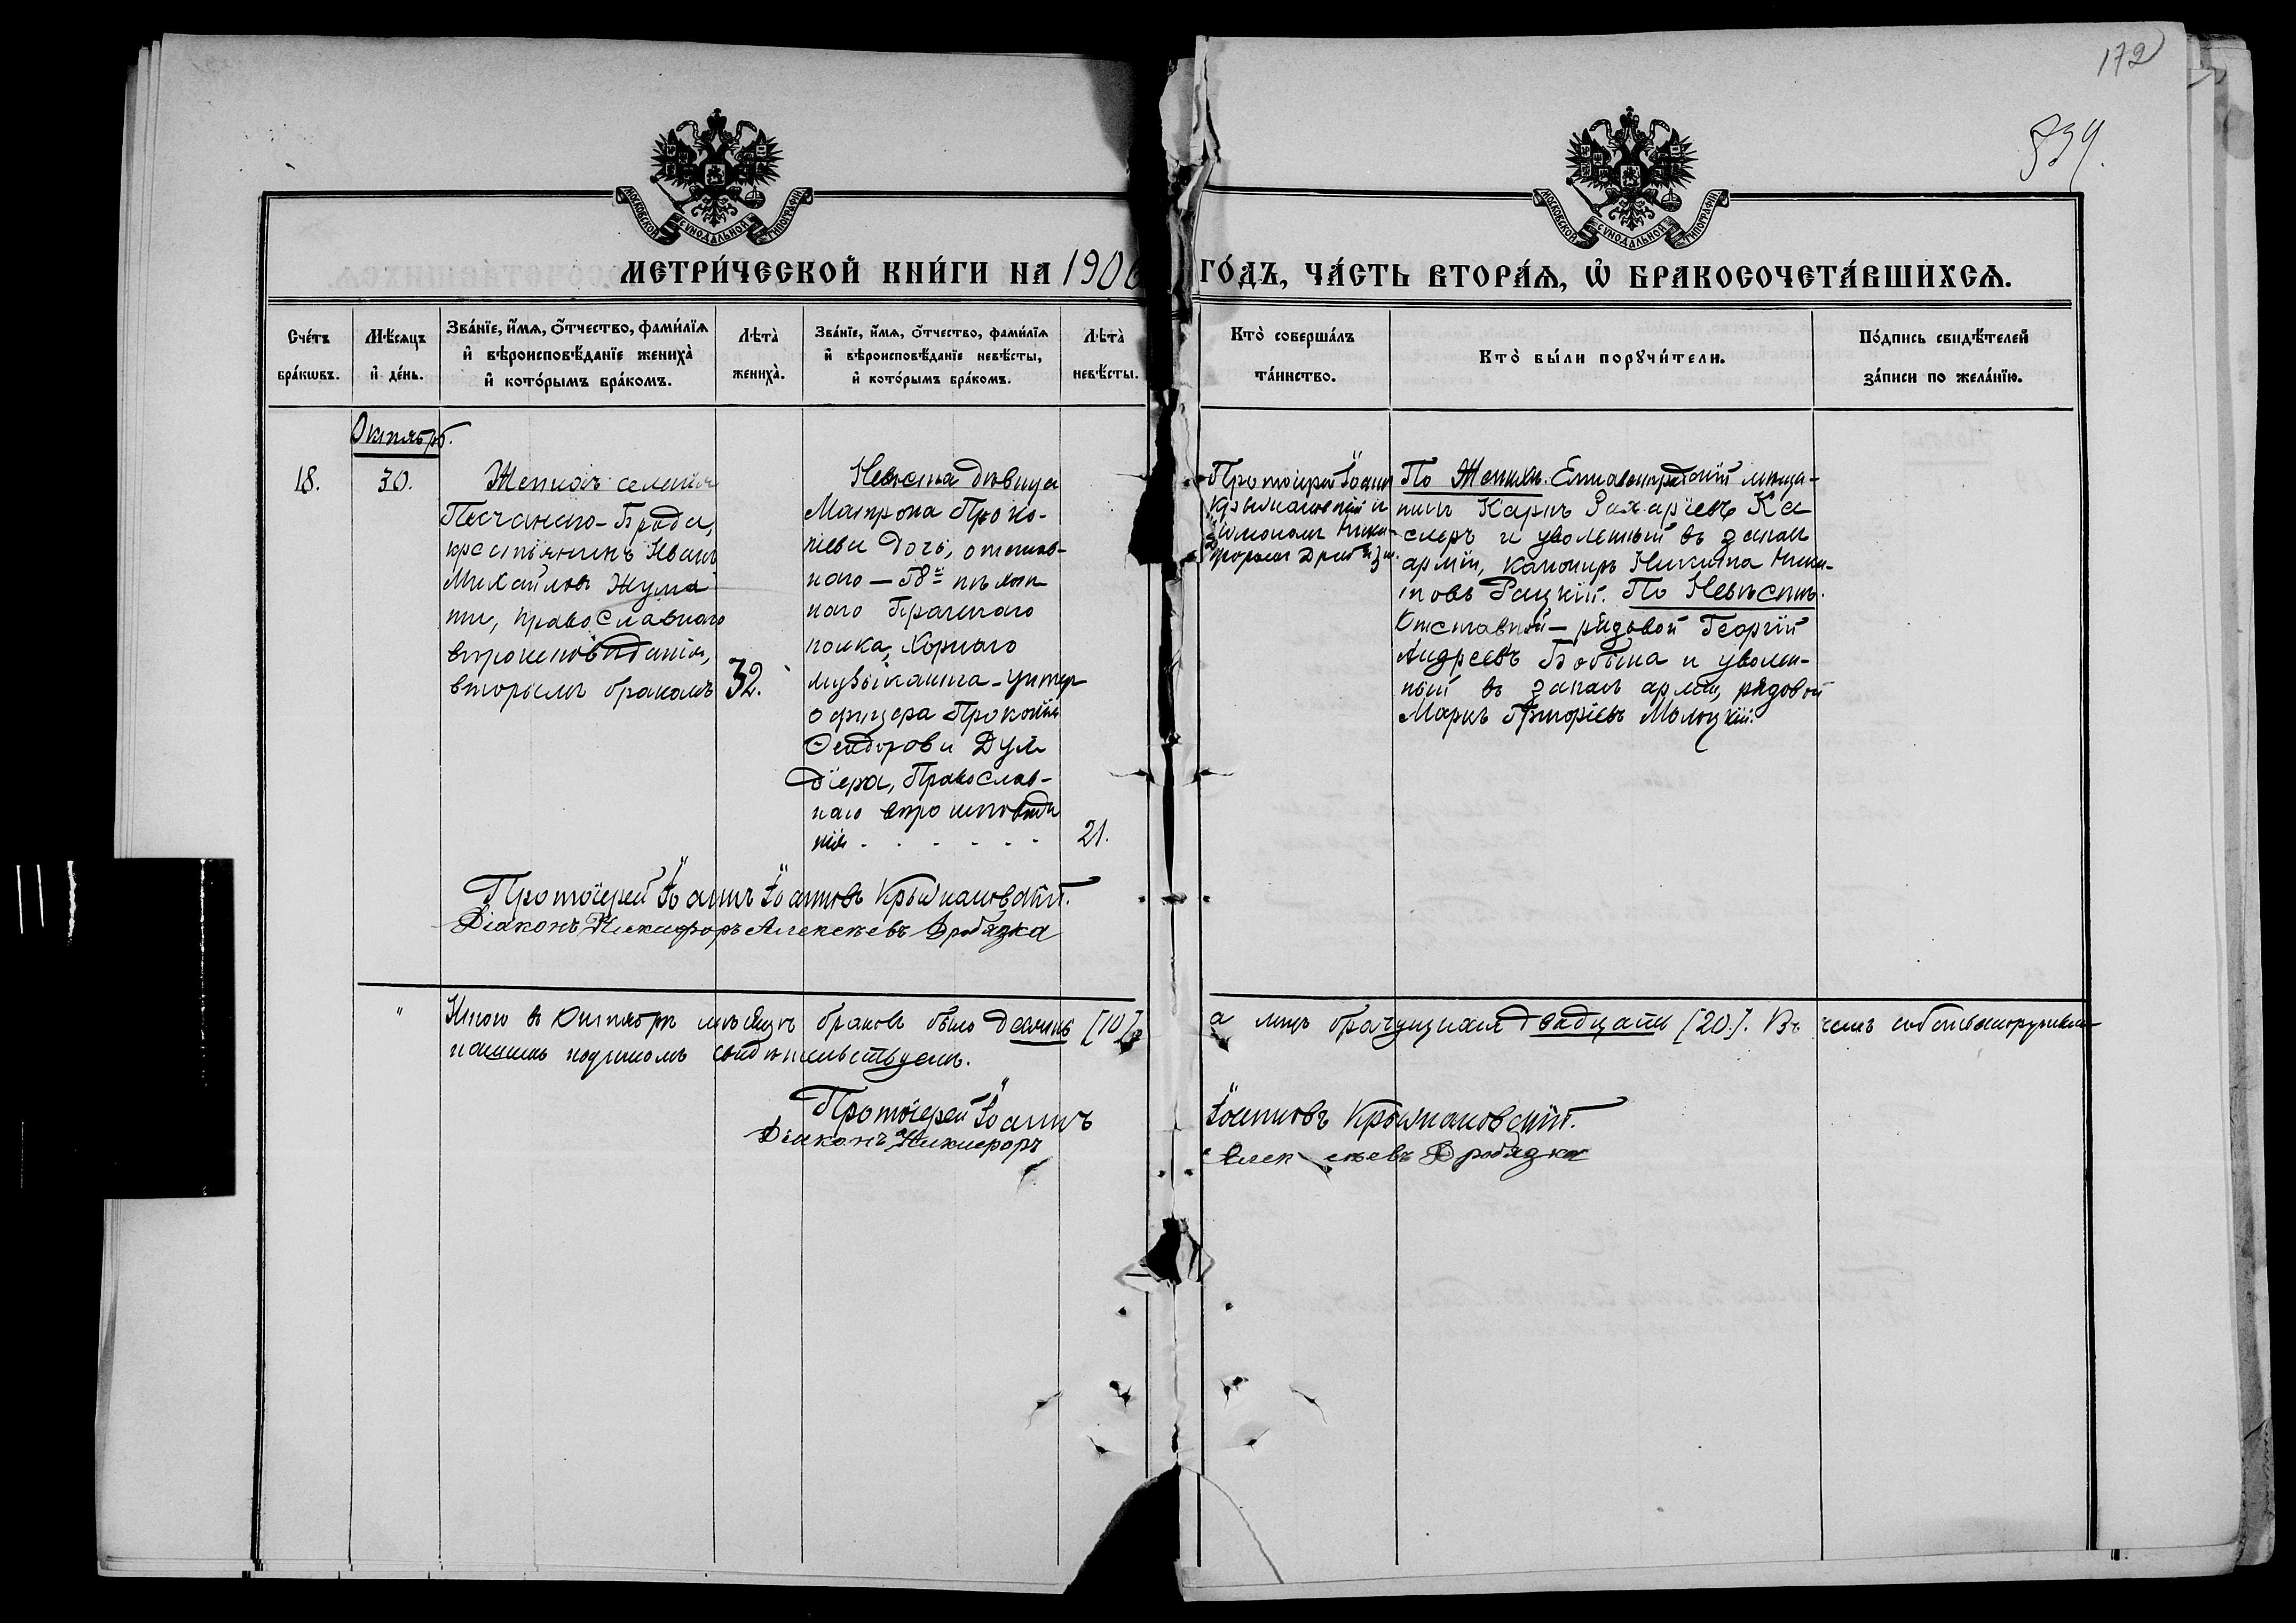 172
539.
МОСКОВСКОЙ СѴНОДАЛЬНОЙ ТИПОГРАФІИ
МОСКОВСКОЙ СѴНОДАЛЬНОЙ ТИПОГРАФІИ
МЕТРИ́ЧЕСКОЙ КНИ́ГИ НА 1906 ГО́ДЪ, ЧА́СТЬ ВТОРА́Ѧ, Ѡ҆ БРАКОСОЧЕТА́ВШИХСѦ.
Сче́тъ бра́кѡвъ.
Мѣ́сѧцъ и҆ де́нь.
Зва́нїе, и҆́мѧ, ѻ҆́тчество, фами́лїѧ
и҆ вѣроисповѣ́данїе жениха̀
и҆ кото́рымъ бра́комъ.
Лѣта̀ жениха̀.
Зва́нїе, и҆́мѧ, ѻ҆́тчество, фами́лїѧ
и҆ вѣроисповѣ́данїе невѣ́сты,
и҆ кото́рымъ бра́комъ.
Лѣта̀ невѣ́сты.
Кто̀ соверша́лъ
та́инство.
Кто̀ бы́ли порꙋчи́тели.
По́дпись свидѣ́телей
за́писи по жела́нїю.
Октябрь.
18.
30.
Женихъ селенія
Песчанаго-Брода,
крестьянинъ Иванъ
Михайловъ
православнаго
вѣроисповѣданія,
вторымъ бракомъ
32.
Невѣста дѣвица
Матрона Проко-
піева дочь, отстав-
наго — 58го пѣхот
наго Пражскаго
полка, Хорнаго
музыканта-унтер
офицера Прокопія
Ѳеодорова Дул
діера, Православ-
наго вѣроисповѣда
нія . . . . . .
21.
Протоіерей Іоаннъ
Крыжановскій и
діаконъ Ники-
форъ Дробязка.
По Женихѣ. Елисаветградскій мѣща-
нинъ Карпъ Захаріевъ Ка
и уволенный въ запасъ
арміи, канониръ Никита
Рацкій. По Невѣстѣ.
Отставной — рядовой Георгій
Андреевъ Бобына и уволен-
ный въ запасъ арміи, рядовой
Маркъ Григоріевъ
Протоіерей Іоаннъ Іоанновъ Крыжановскій.
Діаконъ Никифоръ Алексѣевъ Дробязка
" Итого въ Октябрѣ мѣсяцѣ браковъ было десять [10], а лицъ брачущихся двадцать [20]. Въ чемъ собственноручнымъ
нашимъ подписомъ свидѣтельствуемъ.
Протоіерей Іоаннъ Іоанновъ Крыжановскій.
Діаконъ Никифоръ Алексѣевъ Дробязка